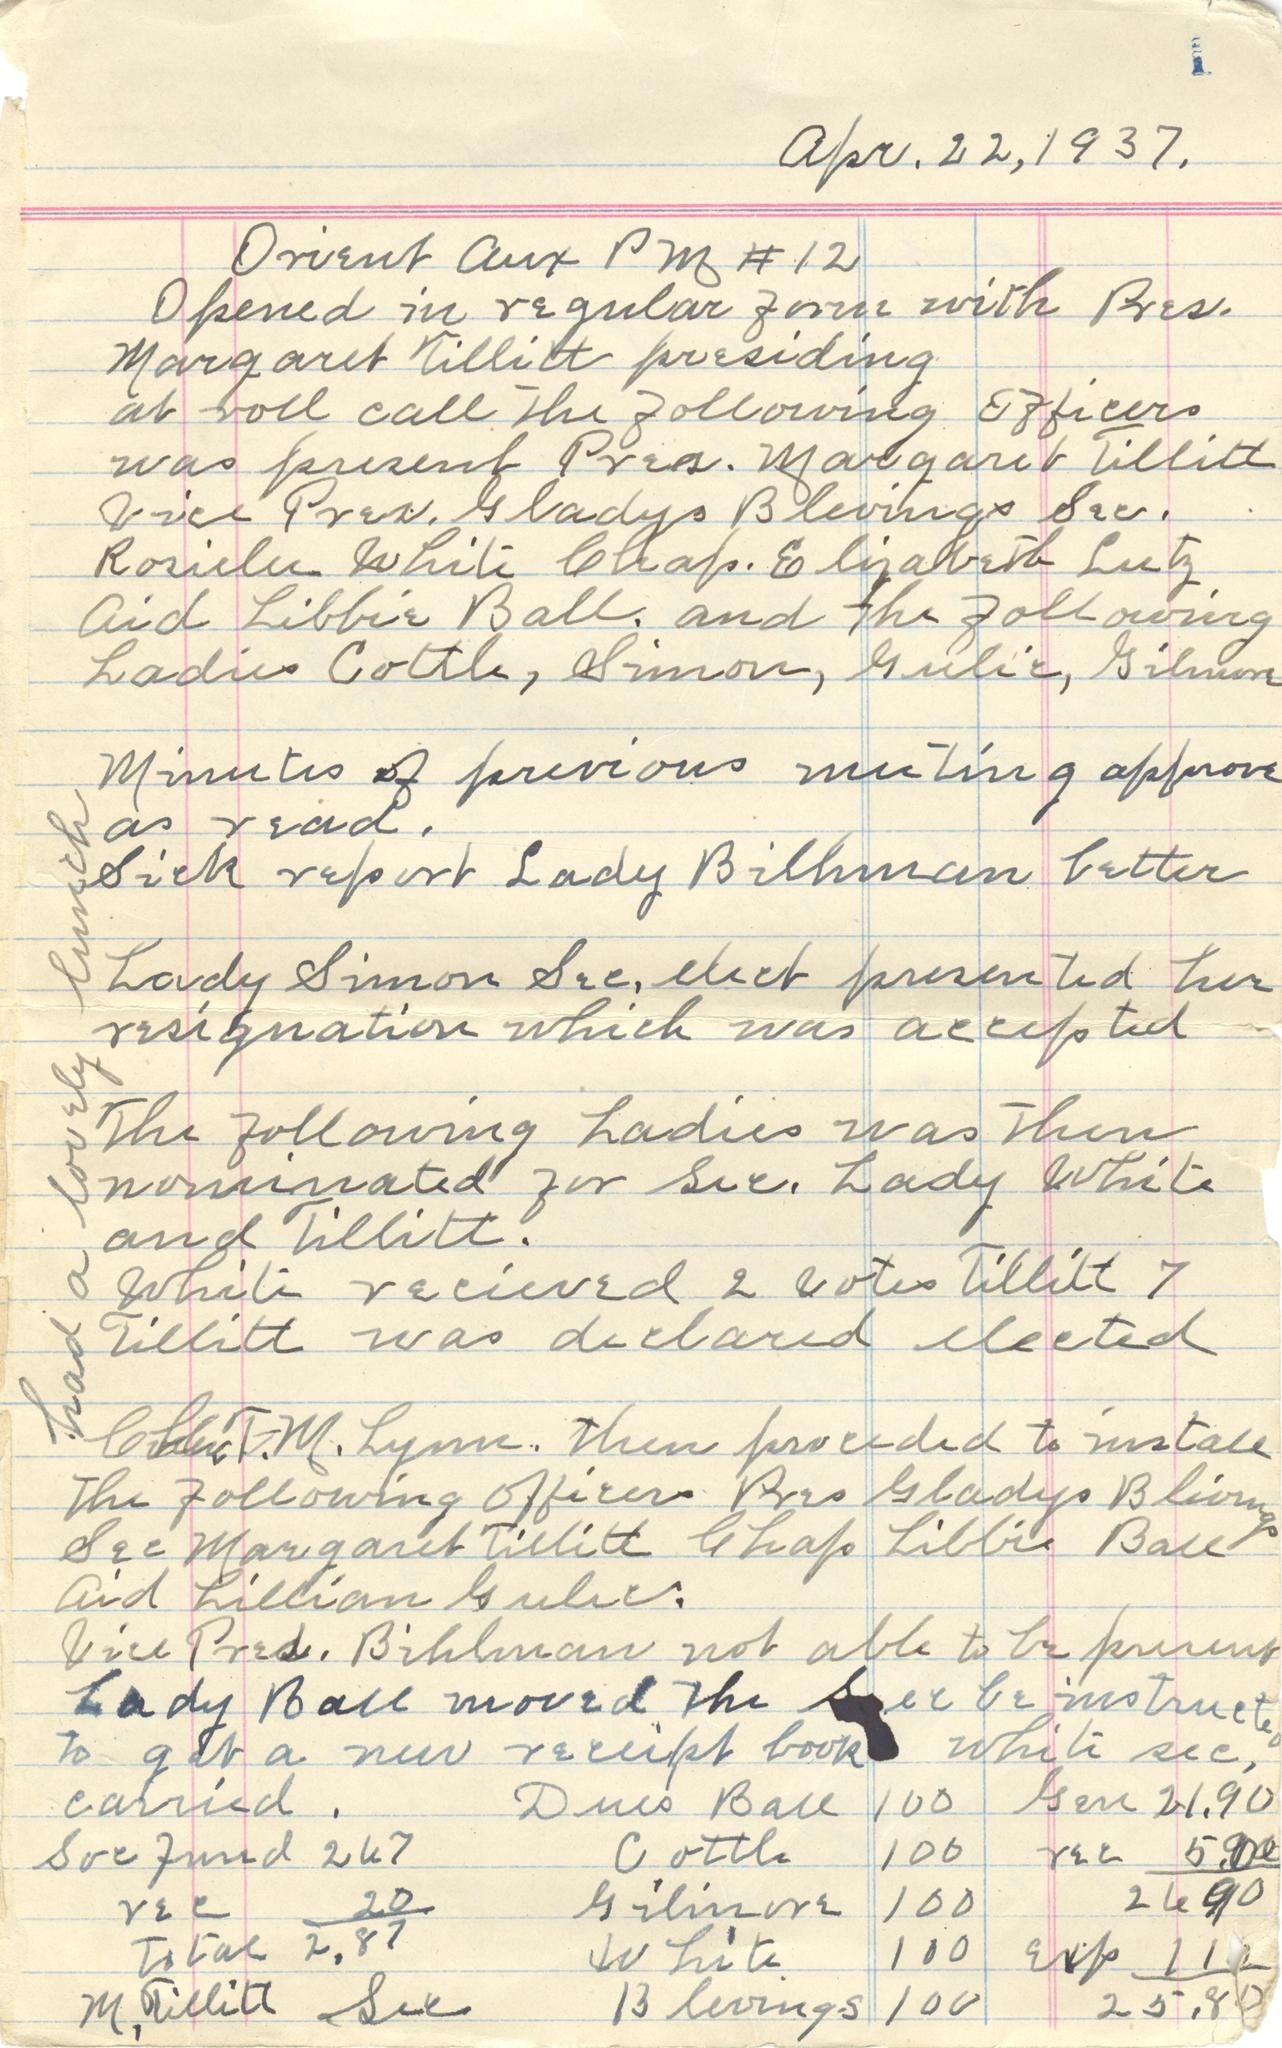 1
Apr. 22, 1937.
Orient Aux PM # 12
Opened in regular form with Pres.
Margaret Tillitt presiding
at roll call the following Officers
was present Pres. Margaret Tillitt
Vice Pres. Gladys Blevings Sec.
White Chap. Elizabeth Lutz
Aid Libbie Ball. and the following
Ladies Cottle, Simon, Gulic, Gilmore
Minutes of previous meeting approve
as read.
Sick report Lady Bilhman better
Lady Simon Sec. elect presented her
resignation which was accepted
The following Ladies was then
nominated for Sec. Lady White
and Tillitt.
White recieved 2 votes Tillitt 7
Tillitt was declared elected
T. M. Lynn. then proceded to install
the following officers Pres Gladys Blivings
Sec Margaret Tillitt Chap Libbie Ball
Aid Lillian Gulic.
Vice Pres. Bihlman not able to be present
Lady Ball moved the Sec be instructed
to get a new receipt book White sec,
carried. Dues Ball 100 Gen 21.90
Soc Fund 267 Cottle 100 rec 5.00
rec 20 Gilmore 100 26 90
total 2.87 White 100 exp
M. Tillitt Sec Blevings 100 25.8
had a lovely lunch